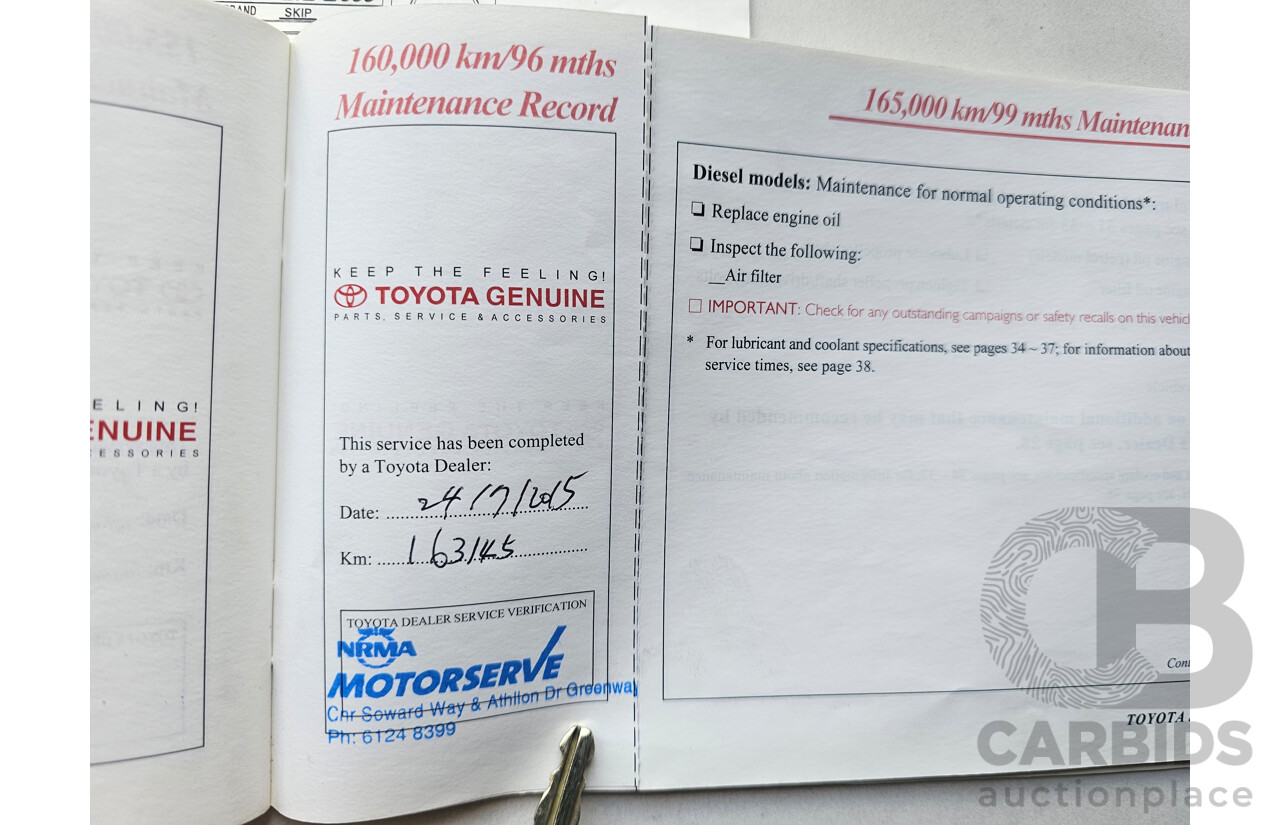 SKIP
160,000 km/96 mths
Maintenance Record
KEEP THE FEELING!
TOYOTA GENUINE
PARTS, SERVICE & ACCESSORIES
This service has been completed
by a Toyota Dealer:
Date: 24/7/2015
Km: 163145
TOYOTA DEALER SERVICE VERIFICATION
NRMA
MOTORSERVE
Cnr Soward Way & Athllon Dr Greenway
Ph: 6124 8399
ELING!
ENUINE
ESSORIES
165,000 km/99 mths Maintenan
Diesel models: Maintenance for normal operating conditions*:
❏ Replace engine oil
❏ Inspect the following:
__Air filter
□ IMPORTANT: Check for any outstanding campaigns or safety recalls on this vehicl
* For lubricant and coolant specifications, see pages 34 ~ 37; for information about
service times, see page 38.
Cont
TOYOTA
CB
CARBIDS
auctionplace